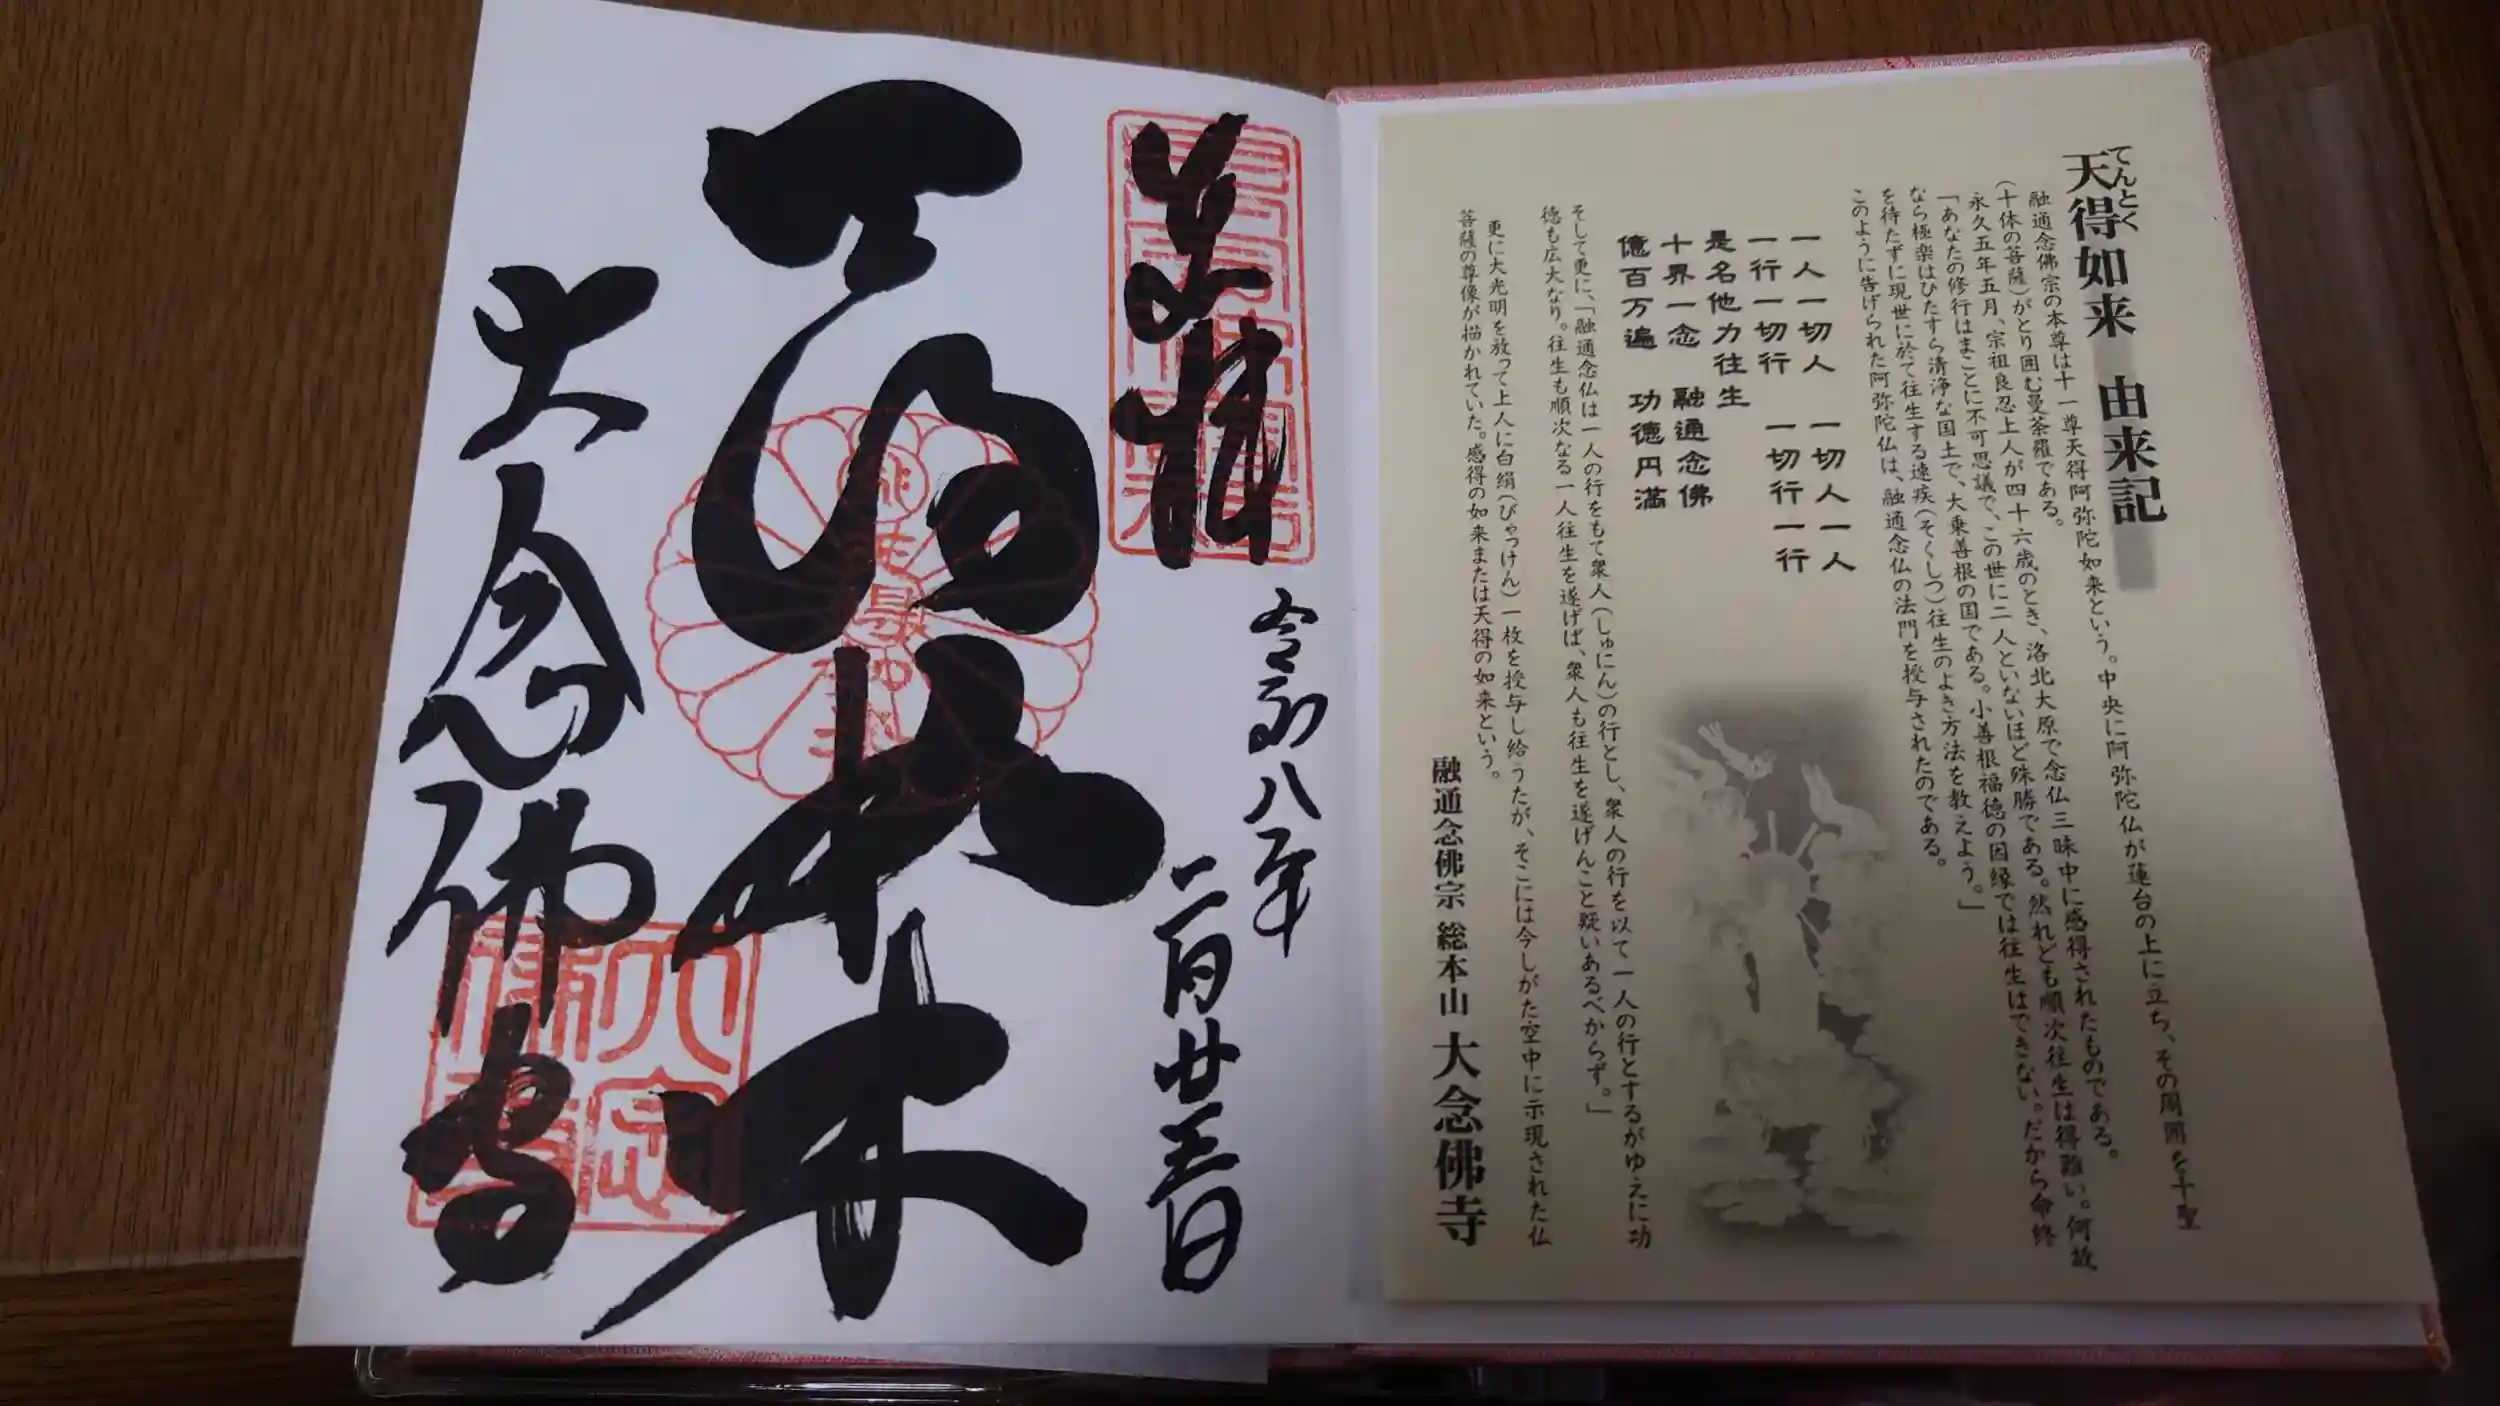 てんとく
天得如来 由来記
融通念佛宗の本尊は十一尊天得阿弥陀如来という。中央に阿弥陀仏が蓮台の上に立ち、その周囲を十聖
(十体の菩薩)がとり囲む曼荼羅である。
永久五年五月、宗祖良忍上人が四十六歳のとき、洛北大原で念仏三昧中に感得されたものである。
「あなたの修行はまことに不可思議で、この世に二人といないほど殊勝である。然れども順次往生は得難い。何故
なら極楽はひたすら清浄な国土で、大乗善根の国である。小善根福徳の因縁では往生はできない。だから命終
を待たずに現世に於て往生する速疾(そくしつ)往生のよき方法を教えよう。」
このように告げられた阿弥陀仏は、融通念仏の法門を授与されたのである。
一人一切人 一切人一人
一行一切行 一切行一行
是名他力往生
十界一念 融通念佛
億百万遍 功徳円満
そして更に、「融通念仏は一人の行をもて衆人(しゅにん)の行とし、衆人の行を以て一人の行とするがゆえに功
徳も広大なり。往生も順次なる一人往生を遂げば、衆人も往生を遂げんこと疑いあるべからず。」
更に大光明を放って上人に白絹(びゃっけん)一枚を授与し給うたが、そこには今しがた空中に示現された仏
菩薩の尊像が描かれていた。感得の如来または天得の如来という。
融通念佛宗 総本山 大念佛寺
奉拝
令和八年
二月廿五日
天得如来
大念佛寺
大念佛寺